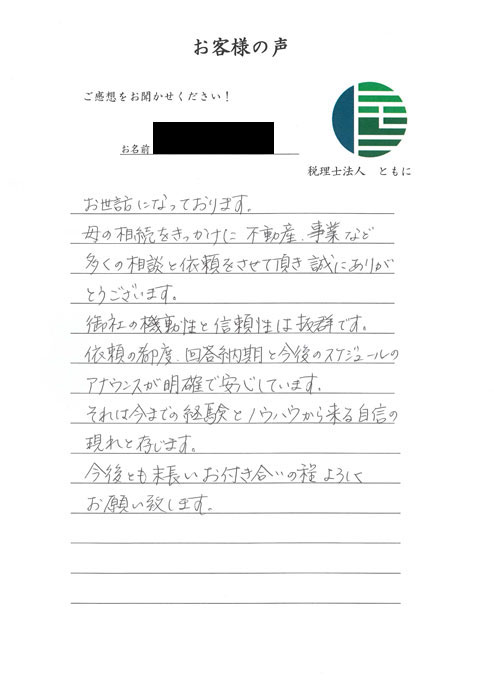 お客様の声
ご感想をお聞かせください！
お名前
税理士法人　ともに
お世話になっております。
母の相続をきっかけに 不動産、事業など
多くの相談と依頼をさせて頂き誠にありが
とうございます。
御社の機動性と信頼性は抜群です。
依頼の都度、回答納期と今後のスケジュールの
アナウンスが明確で安心しています。
それは今までの経験とノウハウから来る自信の
現れと存じます。
今後とも末長いお付き合いの程よろしく
お願い致します。